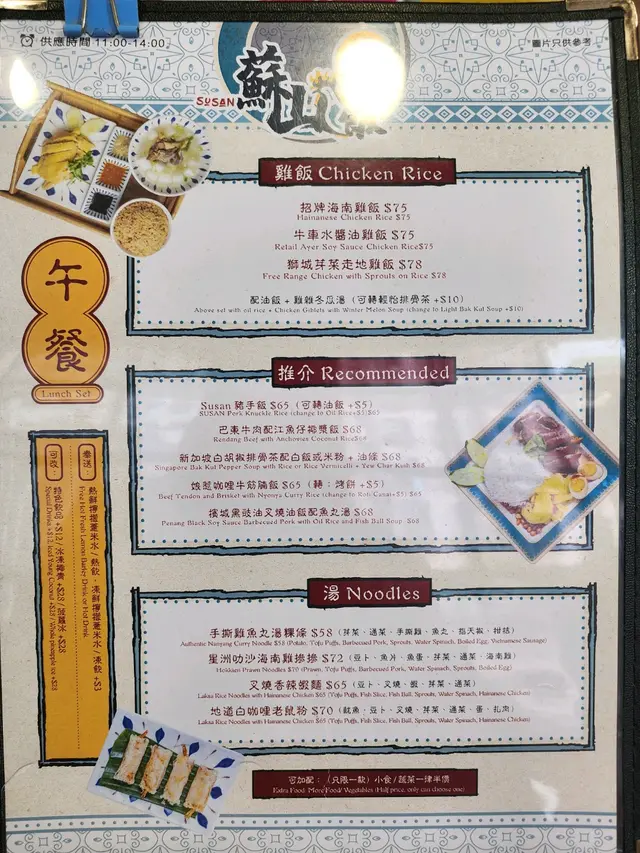 供應時間 11:00-14:00
*圖片只供參考
SUSAN
蘇
雞飯 Chicken Rice
招牌海南雞飯 $75
Hainanese Chicken Rice $75
牛車水醬油雞飯 $75
Retail Ayer Soy Sauce Chicken Rice$75
獅城芽菜走地雞飯 $78
Free Range Chicken with Sprouts on Rice $78
配油飯 + 雞雜冬瓜湯（可轉輕怡排骨茶 +$10）
Above set with oil rice + Chicken Giblets with Winter Melon Soup (change to Light Bak Kut Soup +$10)
午餐
Lunch Set
推介 Recommended
Susan 豬手飯 $65（可轉油飯 +$5）
SUSAN Pork Knuckle Rice (change to Oil Rice+$5)$65
巴東牛肉配江魚仔椰漿飯 $68
Rendang Beef with Anchovies Coconut Rice$68
新加坡白胡椒排骨茶配白飯或米粉 + 油條 $68
Singapore Bak Kut Pepper Soup with Rice or Rice Vermicelli + Yew Char Kueh $68
娘惹咖哩牛筋腩飯 $65（轉：烤餅 +$5）
Beef Tendon and Brisket with Nyonya Curry Rice (change to Roti Canai+$5) $65
檳城黑豉油叉燒油飯配魚之湯 $68
Penang Black Soy Sauce Barbecued Pork with Oil Rice and Fish Ball Soup $68
奉送：熱鮮檸檬薏米水 / 熱飲，凍鮮檸檬薏米水、凍飲 +$3
Free Hot Fresh Lemon Barley Drink or Hot Drink
可改：特色飲品 +$12 / 冰凍椰青 +$28 / 菠蘿冰 +$28
Special Drinks +$12, Iced Young Coconut +$28 / Whole pineapple ice +$28
湯 Noodles
手撕雞魚之湯粿條 $58（芽菜、通菜、手撕雞、魚丸、指天椒、柑桔）
Authentic Nanyang Curry Noodle $58 (Potato, Tofu Puffs, Barbecued Pork, Sprouts, Water Spinach, Boiled Egg, Vietnamese Sausage)
星洲叻沙海南雞擦擦 $72（豆卜、魚片、魚蛋、芽菜、通菜、海南雞）
Hokkien Prawn Noodles $70 (Prawn, Tofu Puffs, Barbecued Pork, Water Spinach, Sprouts, Boiled Egg)
叉燒香辣蝦麵 $65（豆卜、叉燒、蝦、芽菜、通菜）
Laksa Rice Noodles with Hainanese Chicken $65 (Tofu Puffs, Fish Slice, Fish Ball, Sprouts, Water Spinach, Hainanese Chicken)
地道白咖哩老鼠粉 $70（魷魚、豆卜、叉燒、芽菜、通菜、蛋、扎肉）
Laksa Rice Noodles with Hainanese Chicken $65 (Tofu Puffs, Fish Slice, Fish Ball, Sprouts, Water Spinach, Hainanese Chicken)
可加配：（只限一款）小食 / 蔬菜一律半價
Extra Food: More Food/ Vegetables (Half price, only can choose one)